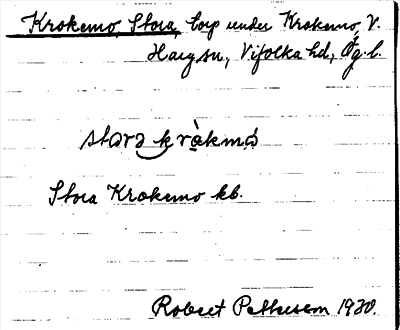 Krokemo, Stora, torp under Krokemo, V.
Harg sn, Vifolka hd, Ög. l.
stora kràkmó
Stora Krokemo kb.
Robert Pettersson 1930.